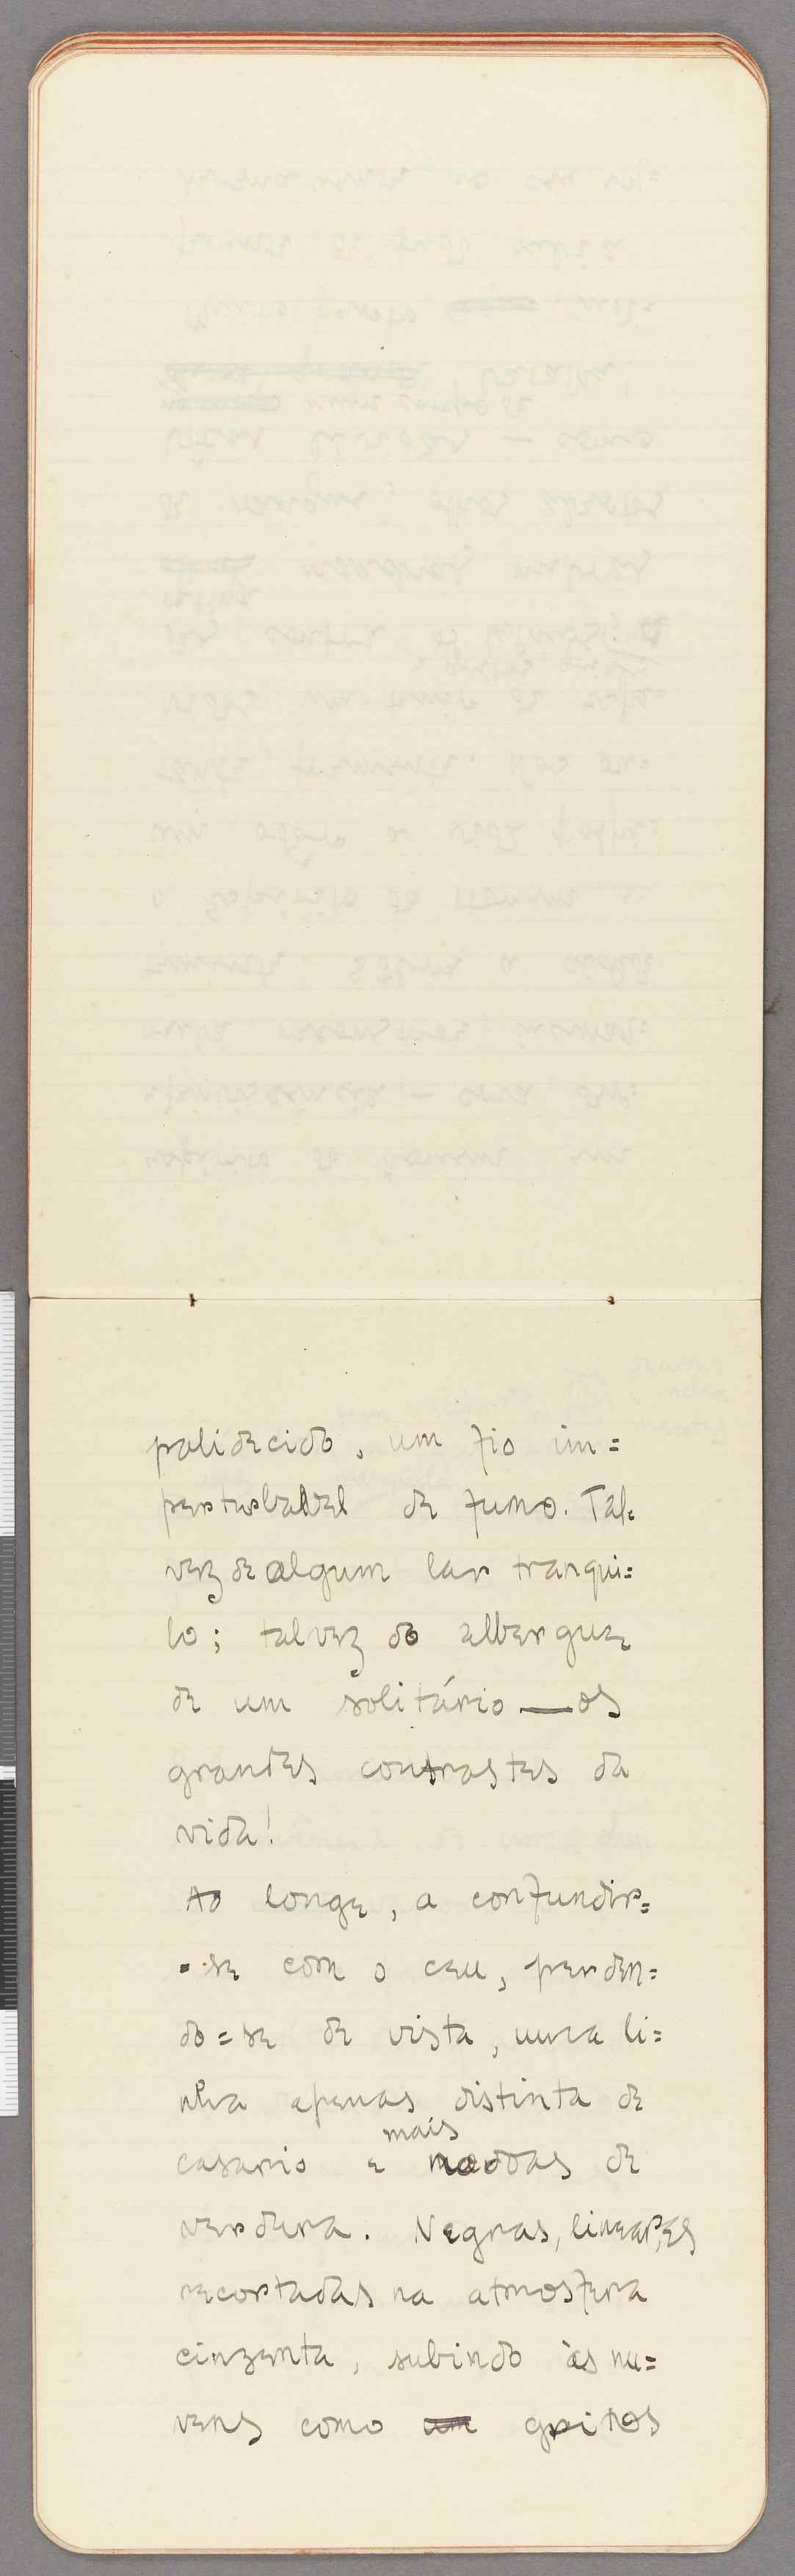 palidecido, um fio im=
perturbável de fumo. Tal=
vez de algum lar tranqui=
lo; talvez do albergue
de um solitário — os
grandes contrastes da
vida!
Ao longe, a confundir=
=se com o ceu, perden=
do=se de vista, uma li=
nha apenas distinta de
mais
casario e nodoas de
verdura. Negras, lineares,
recortadas na atmosfera
cinzenta, subindo às nu=
vens como um gritos